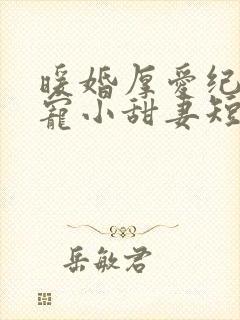 暖婚厚爱纪
宠小甜妻短
岳敏君